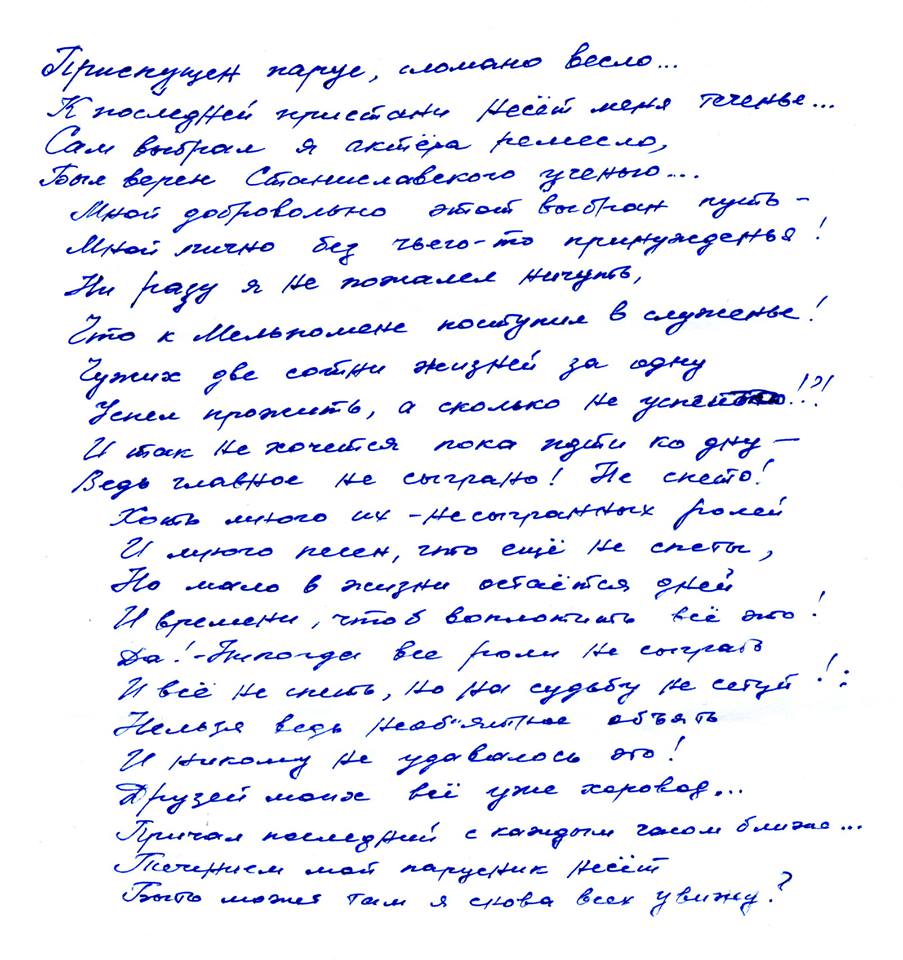 Приспущен парус, сломано весло...
К последней пристани несёт меня теченье...
Сам выбрал я актёра ремесло,
Был верен Станиславского ученью...
Мной добровольно этот выбран путь –
Мной лично без чьего-то принужденья!
Ни разу я не пожалел ничуть,
Что к Мельпомене поступил в служенье!
Чужих две сотни жизней за одну
Успел прожить, а сколько не успето!?!
И так не хочется пока идти ко дну –
Ведь главное не сыграно! Не спето!
Хоть много их - несыгранных ролей
И много песен, что ещё не спеты,
Но мало в жизни остаётся дней
И времени, чтоб воплотить всё это!
Да! - Никогда все роли не сыграть
И всё не спеть, но на судьбу не сетуй!:
Нельзя ведь необъятное объять
И никому не удавалось это!
Друзей моих всё уже хоровод...
Причал последний с каждым часом ближе...
Течением мой парусник несёт
Быть может там я снова всех увижу?